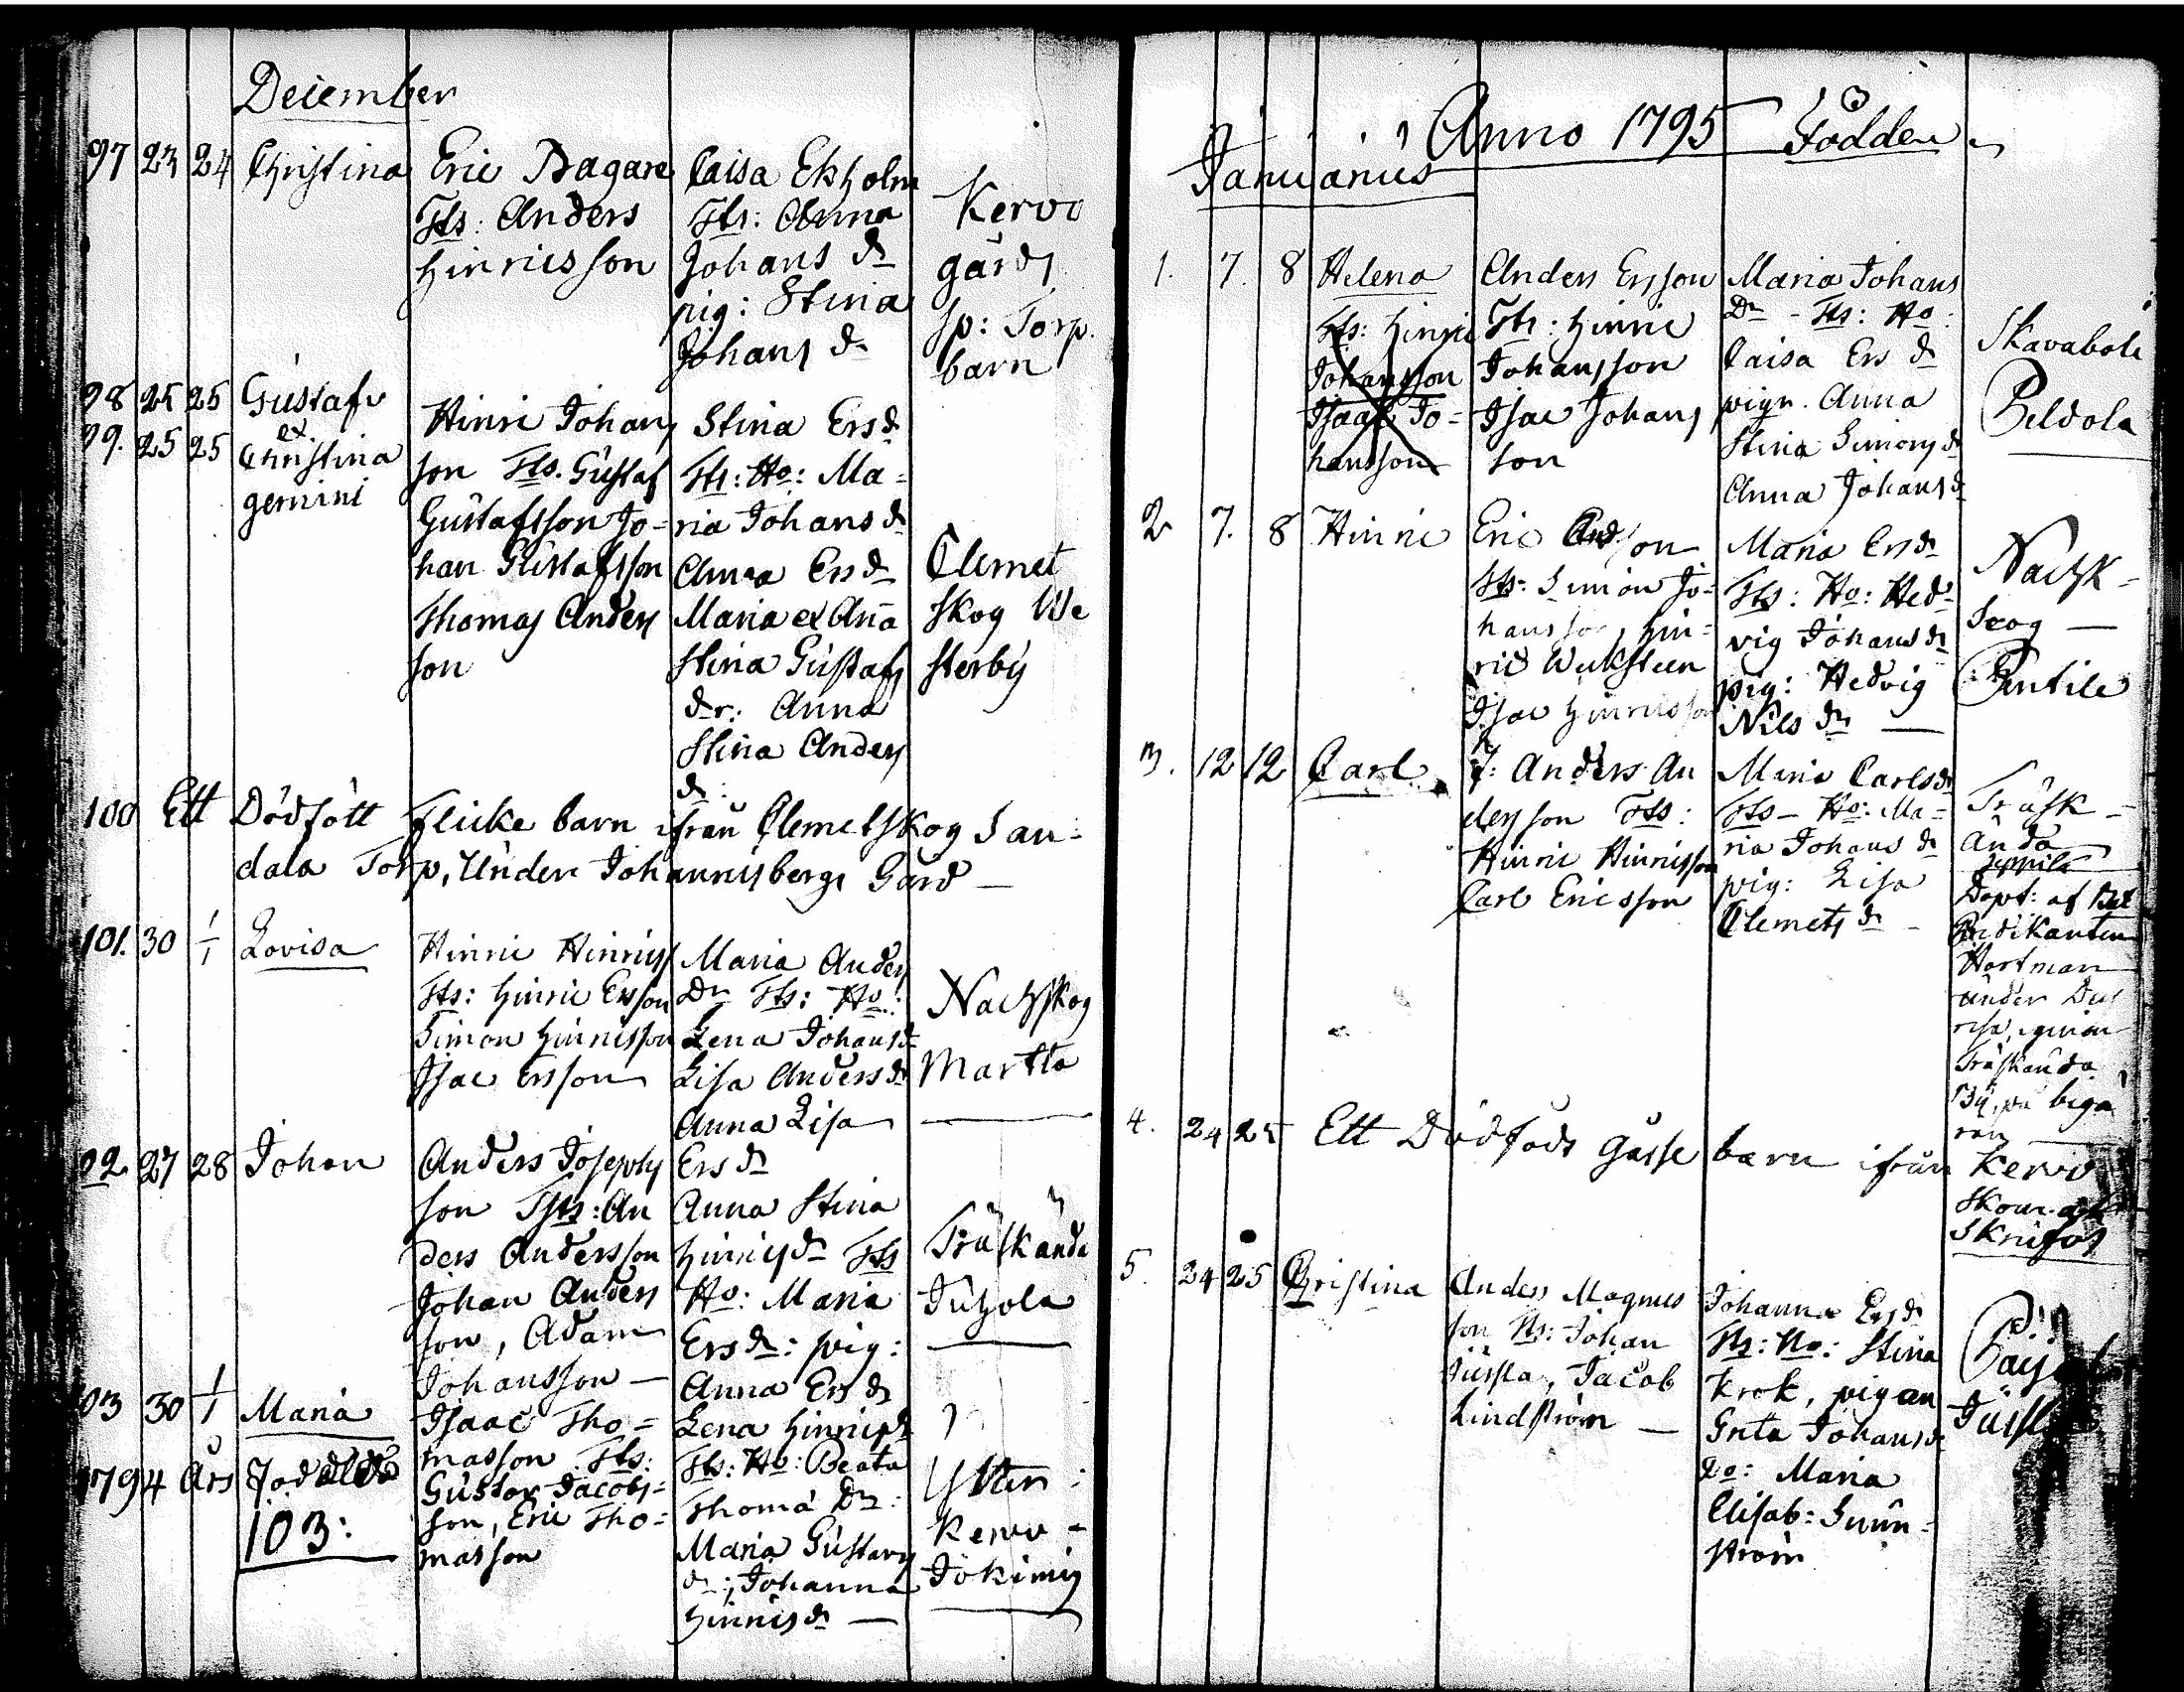 December
97 23 24 Christina
Eric Bagare
Fts: Anders
Hinricsson
Caisa Ekholm
Fts: Anna
Johans dr
pig: Stina
Johans dr
Kervo
gårds
sp: Torp.
barn
98 25 25 Gustaf
99. 25 25 et Christina
gemini
Hinric Johans
son Fts. Gustaf
Gustafsson Jo=
han Gustafsson
Thomas Anders
son
Stina Ers dr
Fts: Ho: Ma=
ria Johans dr
Anna Ers dr
Maria et Anna
Stina Gustafs
dr: Anna
Stina Anders
dr
Clemet
skog We
sterby
100 Ett Dödfött Flicke barn ifrån Clemetskog San=
dala Torp, Under Johannisbergs Gård —
101. 30 1/1 Lovisa
Hinric Hinrics
Fts: Hinric Ersson
Simon Hinricsson
Isac Ersson
Maria Anders
Dr Fts: Ho:
Lena Johans dr
Lisa Anders dr
Anna Lisa
Ers dr
Nackskog
Martta
02 27 28 Johan
Anders Josephs
son Fts: An
ders Andersson
Johan Anders
son, Adam
Johansson —
Anna Stina
Hinrics dr Fts
Ho: Maria
Ers dr: pig:
Anna Ers dr
Träskända
Juhola
03 30 1/1 Maria
Isaac Tho=
masson Fts:
Gustav Jacobs=
son, Eric Tho=
masson
Lena Hinrics dr
Fts: Ho: Beata
Thomæ Dr:
Maria Gustavs
dr:, Johanna
Hinrics dr —
Ytter
Kervo -
Jokimis
1794 års Födde
103:
Anno 1795 Födde
Januarius
1. 7. 8 Helena
Fts: Hinric
Johansson
Isaac Jo=
hansson
Anders Ersson
Fts: Hinric
Johansson
Isac Johans
son
Maria Johans
Dr - Fts: Ho:
Caisa Ers dr
pign. Anna
Stina Simons dr
Anna Johans dr
Skavaböle
Peldola
2 7. 8 Hinric
Eric Andsson
Fts: Simon Jo=
hansson, Hin=
ric Weksteen
Isac Hinricsson
Maria Ers dr
Fts: Ho: Hed=
vig Johans dr
pig: Hedvig
Nils dr —
Nacksk=
scog —
Pentile
3. 12 12 Carl
Anders An
dersson Fts:
Hinric Hinricsson
Carl Ericsson
Maria Carls dr
Fts- Ho: Ma=
ria Johans dr
pig: Lisa
Clemets dr -
Träsk=
ända
Seppilä
Döpt: af
Predikanten
Hortman
under
resa, genom
Träskända
By, på begä
ran
4. 24 25 Ett Dödfödt Gosse barn ifrån Kervo
5. 24 25 Christina
Anders Magnus
son Fts: Johan
Jussla, Jacob
Lindström —
Johanna Ers dr
Fts: Ho: Stina
Krok, pigan
Greta Johans dr
do: Maria
Elisab: Sunn=
ström